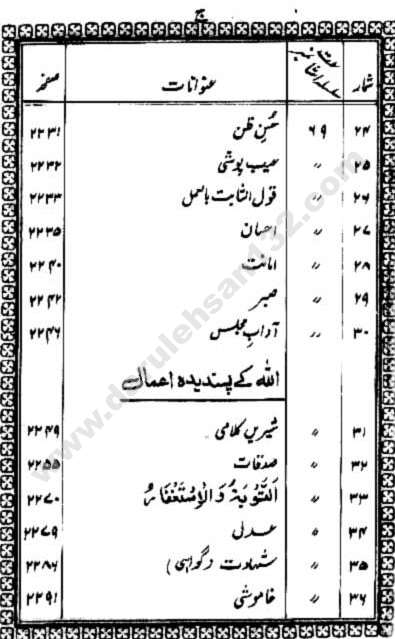 ج
شمار سلسلہ اشاعت نمبر عنوانات صفحہ
۲۴ ۶۹ حُسنِ ظن ۲۲۳۱
۲۵ 〃 عیب پوشی ۲۲۳۲
۲۶ 〃 قول الثابت بالعمل ۲۲۳۳
۲۷ 〃 احسان ۲۲۳۵
۲۸ 〃 امانت ۲۲۴۰
۲۹ 〃 صبر ۲۲۴۲
۳۰ 〃 آدابِ مجلس ۲۲۴۶
اللہ کے پسندیدہ اعمال
۳۱ 〃 شیریں کلامی ۲۲۴۹
۳۲ 〃 صدقات ۲۲۵۵
۳۳ 〃 اَلتَّوْبَةُ وَالْاِسْتَغْفَارُ ۲۲۷۰
۳۴ 〃 عدل ۲۲۷۹
۳۵ 〃 شہادت (گواہی) ۲۲۸۶
۳۶ 〃 خاموشی ۲۲۹۱
www.darulehsan132.com